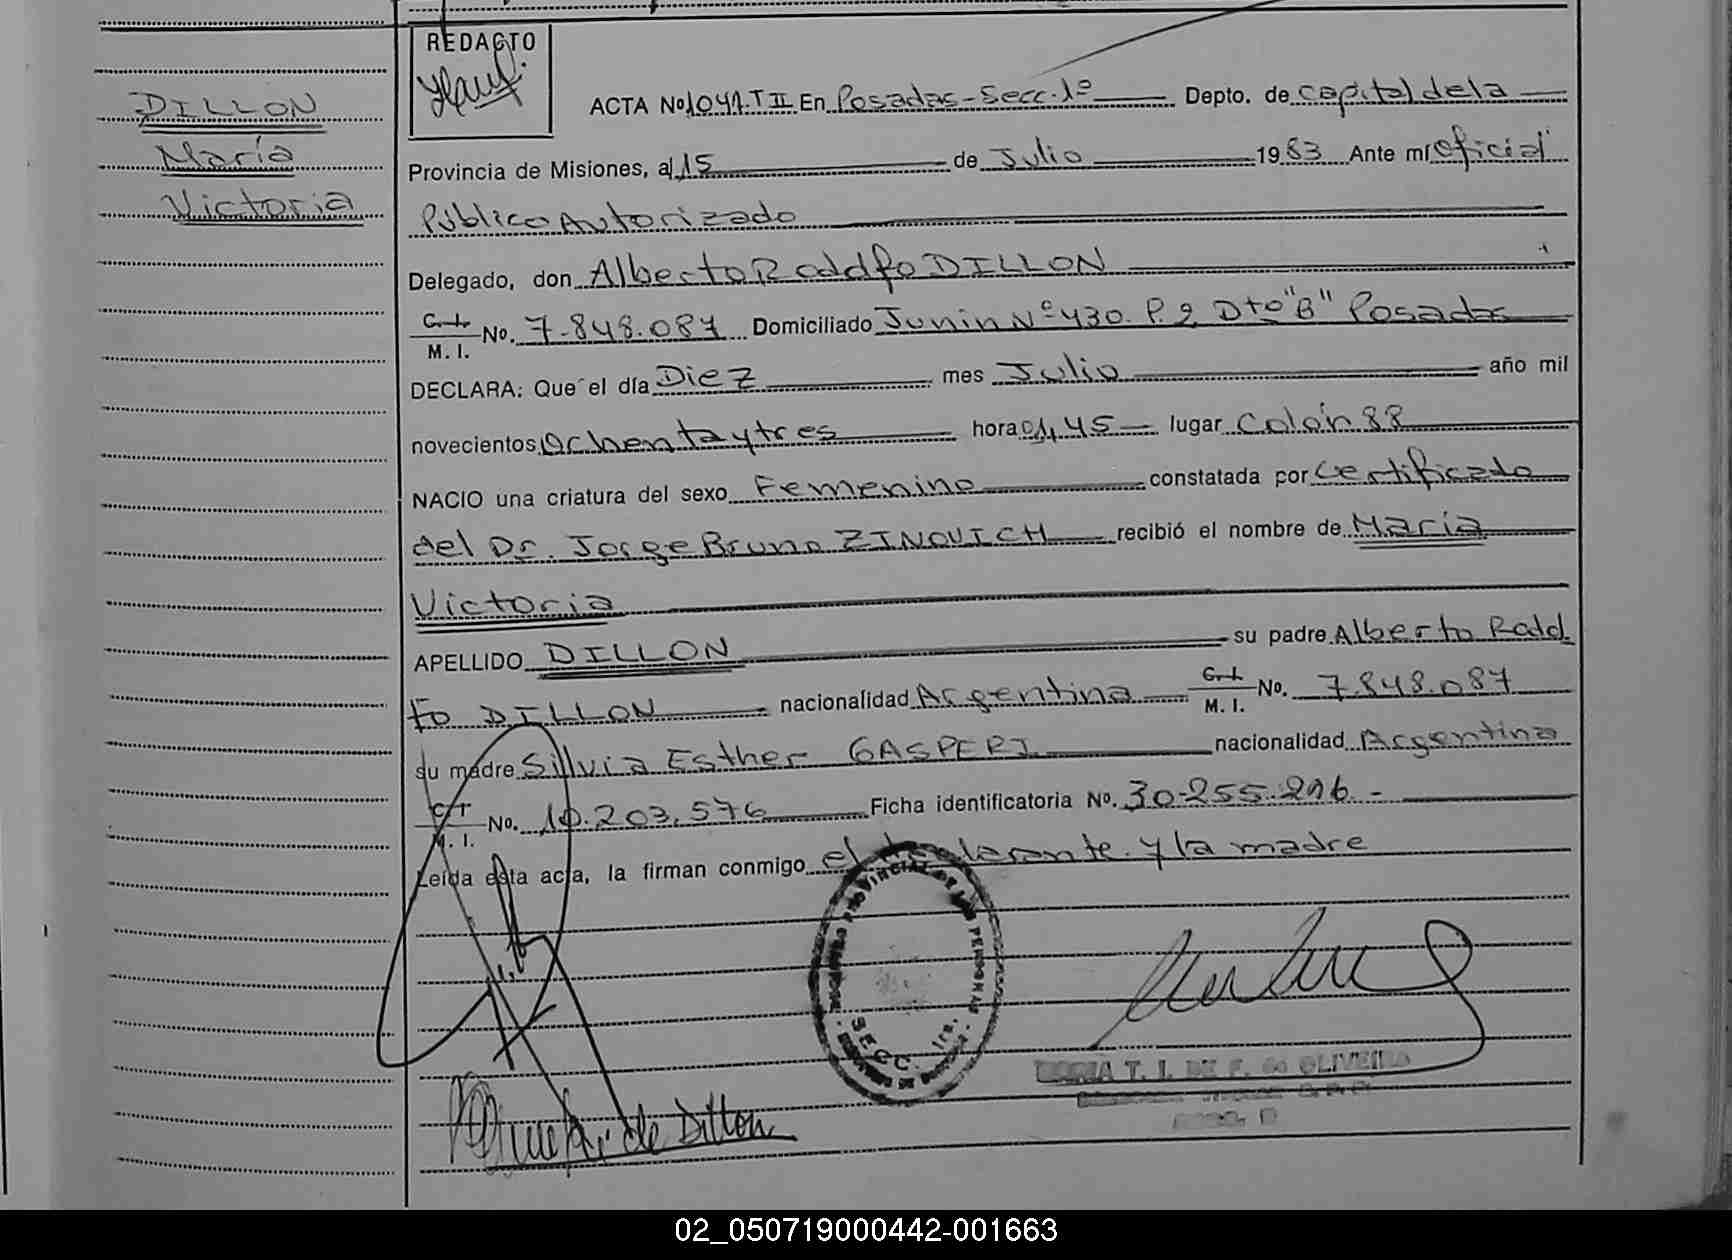 REDACTO
DILLON
María
Victoria
ACTA Nº 1041.T II En Posadas-Secc.1º Depto. de capital de la
Provincia de Misiones, a 15 de Julio 1983 Ante mí oficial
Público Autorizado
Delegado, don Alberto Rodolfo DILLON
M. I. No. 7.848.087 Domiciliado Junin Nº 430. P. 2 Dto "B" Posadas
DECLARA: Que el día Diez mes Julio año mil
novecientos Ochenta y tres hora 01,45 lugar Colón 88
NACIO una criatura del sexo Femenino constatada por Certificado
del Dr. Jorge Bruno ZINOVICH recibió el nombre de María
Victoria
APELLIDO DILLON su padre Alberto Rodol
fo DILLON nacionalidad Argentina M. I. No. 7.848.087
su madre Sillvia Esther GASPERI nacionalidad Argentina
M. I. No. 10.203.576 Ficha identificatoria No. 30.255.216.-
Leída esta acta, la firman conmigo el declarante. y la madre
SECC. 1ra.
de Dillon
T. I. DE F. de OLIVEIRA
02_050719000442-001663